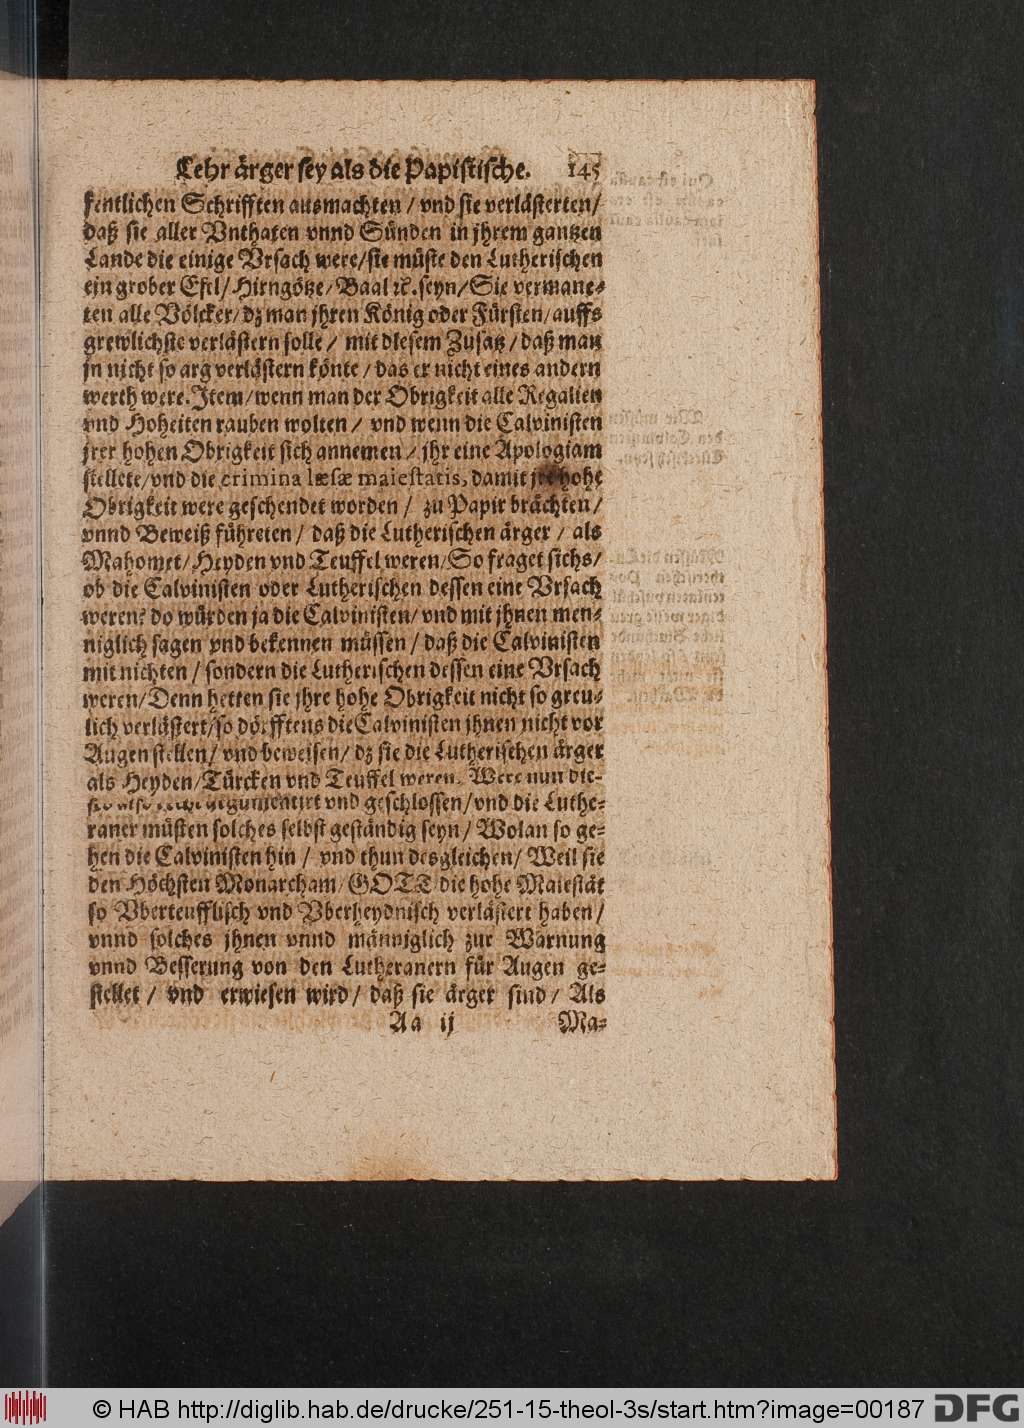 Lehr ärger sey als die Papistische. 145
fentlichen Schrifften ausmachten / vnd sie verlästerten /
daß sie aller Vnthaten vnnd Sünden in jhrem gantzen
Lande die einige Vrsach were / sie müste den Lutherischen
ein grober Esel / Hirngötze / Baal ꝛc. seyn / Sie vermane⸗
ten alle Völcker / dz man jhren König oder Fürsten / auffs
grewlichste verlästern solle / mit diesem Zusatz / daß man
jn nicht so arg verlästern könte / das er nicht eines andern
werth were. Item / wenn man der Obrigkeit alle Regalien
vnd Hoheiten rauben wolten / vnd wenn die Calvinisten
jrer hohen Obrigkeit sich annemen / jhr eine Apologiam
stellete / vnd die crimina læsæ maiestatis, damit hohe
Obrigkeit were geschendet worden / zu Papir brächten /
vnnd Beweiß führeten / daß die Lutherischen ärger / als
Mahomet / Heyden vnd Teuffel weren / So fraget sichs /
ob die Calvinisten oder Lutherischen dessen eine Vrsach
weren? do würden ja die Calvinisten / vnd mit jhnen men⸗
niglich sagen vnd bekennen müssen / daß die Calvinisten
mit nichten / sondern die Lutherischen dessen eine Vrsach
weren / Denn hetten sie jhre hohe Obrigkeit nicht so greu⸗
lich verlästert / so dörfftens die Calvinisten jhnen nicht vor
Augen stellen / vnd beweisen / dz sie die Lutherischen ärger
als Heyden / Türcken vnd Teuffel weren. Were nun die⸗
argumentirt vnd geschlossen / vnd die Luthe⸗
raner müsten solches selbst geständig seyn / Wolan so ge⸗
hen die Calvinisten hin / vnd thun desgleichen / Weil sie
den Höchsten Monarcham / GOTT die hohe Maiestät
so Vberteufflisch vnd Vberheydnisch verlästert haben /
vnnd solches jhnen vnnd männiglich zur Warnung
vnnd Besserung von den Lutheranern für Augen ge⸗
stellet / vnd erwiesen wird / daß sie ärger sind / Als
Aa ij Ma⸗
© HAB http://diglib.hab.de/drucke/251-15-theol-3s/start.htm?image=00187 DFG